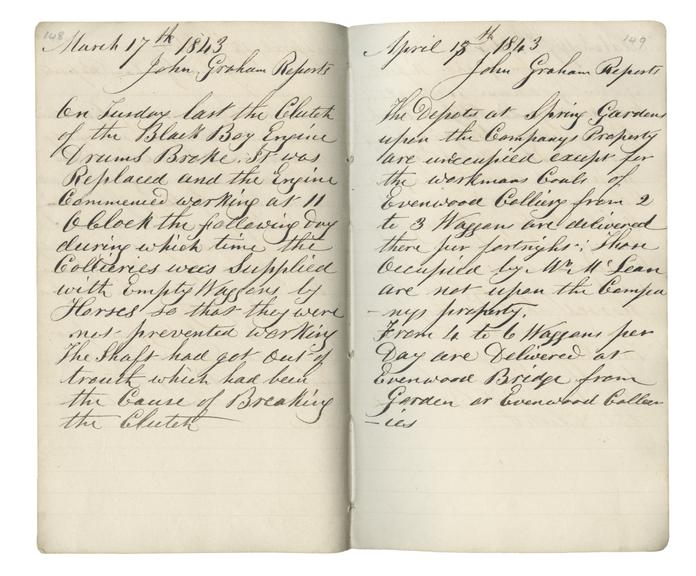 148
March 17th 1843
John Graham Reports
On Tusday last the Clutch
of the Black Boy Engine
Drums Broke. It was
Replaced and the Engine
Commenced working at 11
O Clock the following day
during which time the
Collieries was Supplied
with Empty Waggons by
Horses so that they were
not prevented working
The Shaft had got out of
trouth which had been
the Cause of Breaking
the Clutch
149
April 13th 1843
John Graham Reports
The Depots at Spring Gardens
upon the Companys Property
are unocupied except for
the workmans Coals of
Evenwood Colliery from 2
to 3 Waggans are delivered
there per fortnight; Those
Occupied by Mr. McLean
are not upon the Compa
-nys property.
From 4 to 6 Waggans per
Day are Delivered at
Evenwood Bridge from
Garden or Evenwood Collier
-ies